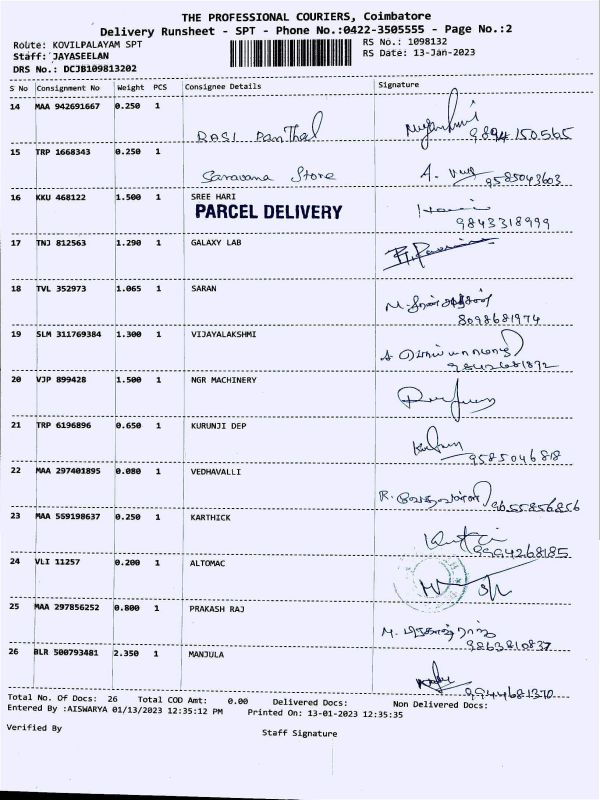 THE PROFESSIONAL COURIERS, Coimbatore
Delivery Runsheet - SPT - Phone No.:0422-3505555 - Page No.:2
Route: KOVILPALAYAM SPT
RS No.: 1098132
Staff: JAYASEELAN
RS Date: 13-Jan-2023
DRS No.: DCJB109813202
S No Consignment No Weight PCS Consignee Details Signature
14 MAA 942691667 0.250 1
RASI Panthal 9894150565
15 TRP 1668343 0.250 1
Saravana Store A. 9585043603
16 KKU 468122 1.500 1 SREE HARI
PARCEL DELIVERY
9843318999
17 TNJ 812563 1.290 1 GALAXY LAB
18 TVL 352973 1.065 1 SARAN
8098681974
19 SLM 311769384 1.300 1 VIJAYALAKSHMI
20 VJP 899428 1.500 1 NGR MACHINERY
21 TRP 6196896 0.650 1 KURUNJI DEP
9585046818
22 MAA 297401895 0.080 1 VEDHAVALLI
R. வேதவள்ளி 9655856856
23 MAA 569198637 0.250 1 KARTHICK
9994268185
24 VLI 11257 0.200 1 ALTOMAC
25 MAA 297856252 0.800 1 PRAKASH RAJ
9863810837
26 BLR 500793481 2.350 1 MANJULA
9944681370
Total No. Of Docs: 26 Total COD Amt: 0.00 Delivered Docs: Non Delivered Docs:
Entered By :AISWARYA 01/13/2023 12:35:12 PM Printed On: 13-01-2023 12:35:35
Verified By
Staff Signature